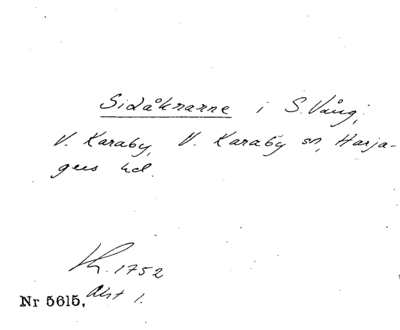 Sidåkrarne i S. Vång,
V. Karaby, V. Karaby sn, Harja-
gers hd.
Kh. 1752
Akt 1.
Nr 5615,